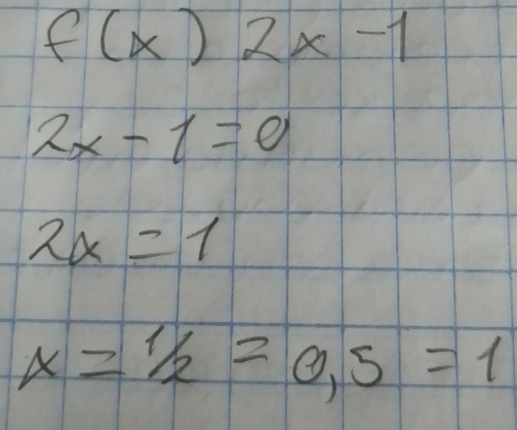 f(x) 2x-1
2x-1=0
2x=1
x=1/2=0,5=1